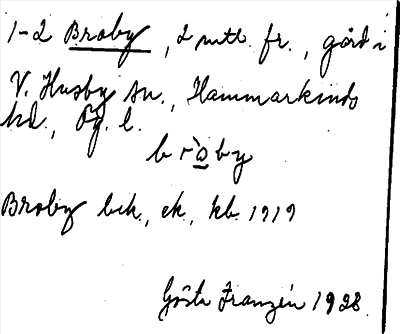 1-2 Broby, 2 mtl. fr., gård i
V. Husby sn., Hammarkinds
hd., Ög. l.
bròby
Broby bek., ek., kb. 1919
Gösta Franzén 1928.